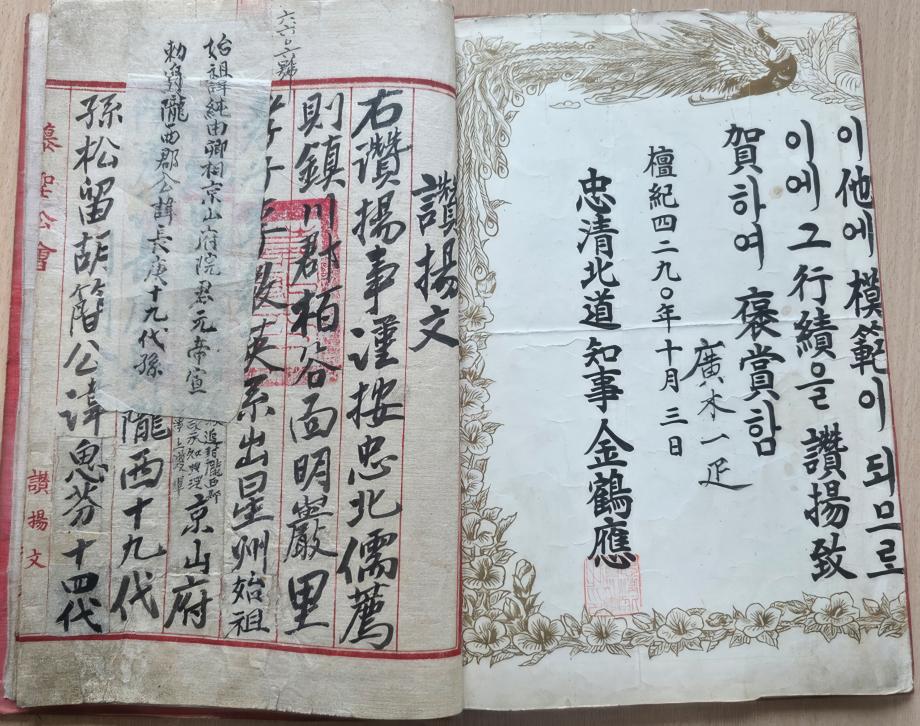 이他에 模範이 되므로
이에 그 行績을 讚揚致
賀하여 褒賞함
廣木一疋
檀紀四二九〇年十月三日
忠淸北道知事 金鶴應
讚揚文
右讚揚事謹按忠北儒薦
則鎭川郡栢谷面明巖里
英系出星州始祖
京山府
隴西十九代
孫松留胡簡公諱思芬十四代
始祖諱純由卿相京山府院君元帝宣
勅爵隴西郡公諱長庚十九代孫
慕聖公會
讚揚文